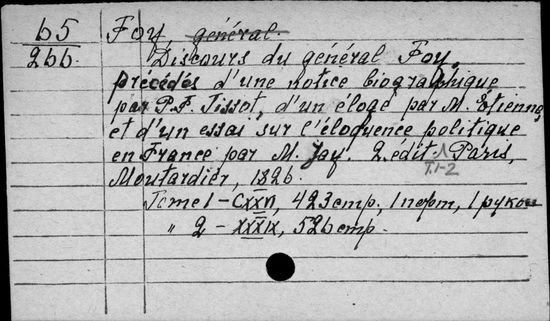 65
266.
Foy, général.
Discours du général Foy,
précédés d'une notice biographique
par P.F. Tissot, d'un élogé par M. Étienne,
et d'un essai sur l'éloquence politique
en France par M. Jay. 2 édit. Paris,
T.1-2
Moutardier, 1826.
Tome 1 – CXXII, 423 стр, 1 портр, 1 рукоп
" 2 – XXXIX, 526 стр.